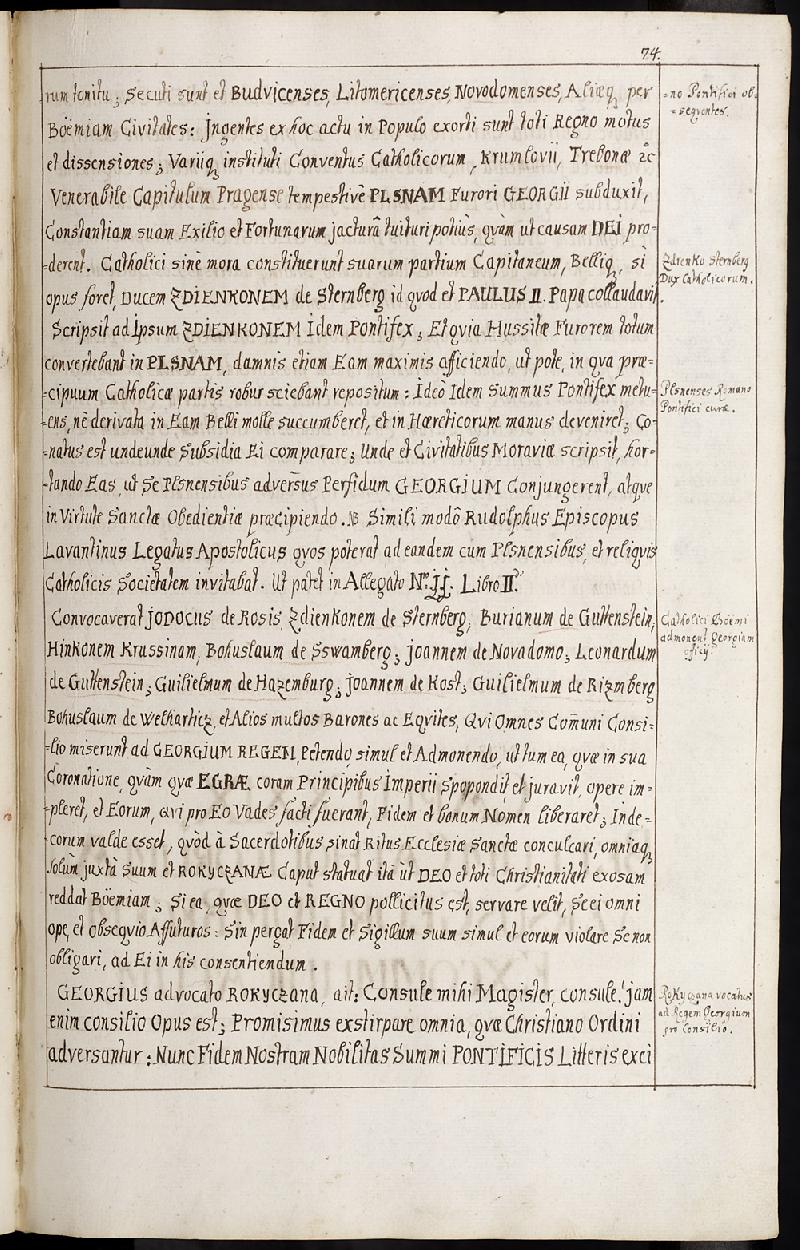 74.
rum tonitu; Secuti sunt et Budvicenses, Litomericenses, Novodomenses, Aliiq, per
Boëmiam Civitates: Jngentes ex hoc actu in Populo exorti sunt toti Regno motus
et dissensiones; Variiq instituti Conventus Catholicorum, Krumlovii, Trebonæ &c
Venerabile Capitulum Pragense tempestivè PLSNAM Furori GEORGII subduxit,
Constantiam suam Exilio et Fortunarum jacturâ tuituri potiùs, quàm ut causam DEI pro=
=derent. Catholici sinè mora constituerunt suarum partium Capitaneum, Belliq, si
opus foret, Ducem ZDIENKONEM de Sternberg id quod et PAULUS II. Papa collaudavit.
Scripsit ad Ipsum ZDIENKONEM Idem Pontifex; Et quia Hussitæ Furorem totum
convertebant in PLSNAM, damnis etiam Eam maximis afficiendo, ut pote, in qua præ=
=cipuum Catholicæ partis robur sciebant repositum: Ideò Idem Summus Pontifex metu=
=ens, nè derivata in Eam Belli molle succumberet, et in Hæreticorum manus deveniret; Co=
=natus est undeunde Subsidia Ei comparare; Unde et Civitatibus Moraviæ scripsit, hor=
=tando Eas, ut Se Plsnensibus adversùs Perfidum GEORGIUM Conjungerent, atque
in Virtute Sanctæ Obedientiæ præcipiendo. Simili modò Rudolphus Episcopus
Lavantinus Legatus Apostolicus quos poterat ad eandem cum Plsnensibus, et reliquis
Catholicis Societatem invitabat. Ut patet in Allegato No. JJ. Libro II.
Convocaverat JODOCUS de Rosis, Zdienkonem de Sternberg, Burianum de Guttenstein,
Hinkonem Krussinam, Bohuslaum de Sswamberg; Joannem de Novadomo; Leonardum
de Guttenstein; Guilielmum de Hazemburg; Joannem de Kost; Guilielmum de Rizmberg
Bohuslaum de Welhartitz, et Alios multos Barones ac Equites, Qvi Omnes Com̃uni Consi=
=lio miserunt ad GEORGIUM REGEM, Petendo simul et Admonendo, ut tum ea, quæ in sua
Coronatione, quàm quæ EGRÆ coram Principibus Imperii Spopondit et juravit, opere im=
=pleret, et Eorum, qui pro Eo Vades facti fuerant, Fidem et bonum Nomen liberaret; Inde=
corum valde esset, quòd à Sacerdotibus sinat Ritus Ecclesiæ Sanctæ conculcari, omniaq
Solùm juxtà suum et ROKYCZANÆ Caput statuat ità ùt DEO et toti Christianitati exosam
reddat Boëmiam; Si ea, quæ DEO et REGNO pollicitus est, servare velit, Se ei omni
ope, et obsequio Affuturos: Sin pergat Fidem et Sigillum suum simul et eorum violare Se non
obligari, ad Ei in his consentiendum.
GEORGIUS advocato ROKYCZANA, ait: Consule mihi Magister, consule! jam
enim consilio Opus est; Promisimus exstirpare omnia, quæ Christiano Ordini
adversantur: Nunc Fidem Nostram Nobilitas Summi PONTIFICIS Litteris exci
=no Pontifici ob=
=sequentes.
Zdienko Sternberg
Dux Catholicorum.
Plsnenses Romano
Pontifici curæ.
Catholici Boëmi
admonent Georgium
officij.
Rokyczana vocatus
ad Regem Georgium
pro Consilio.